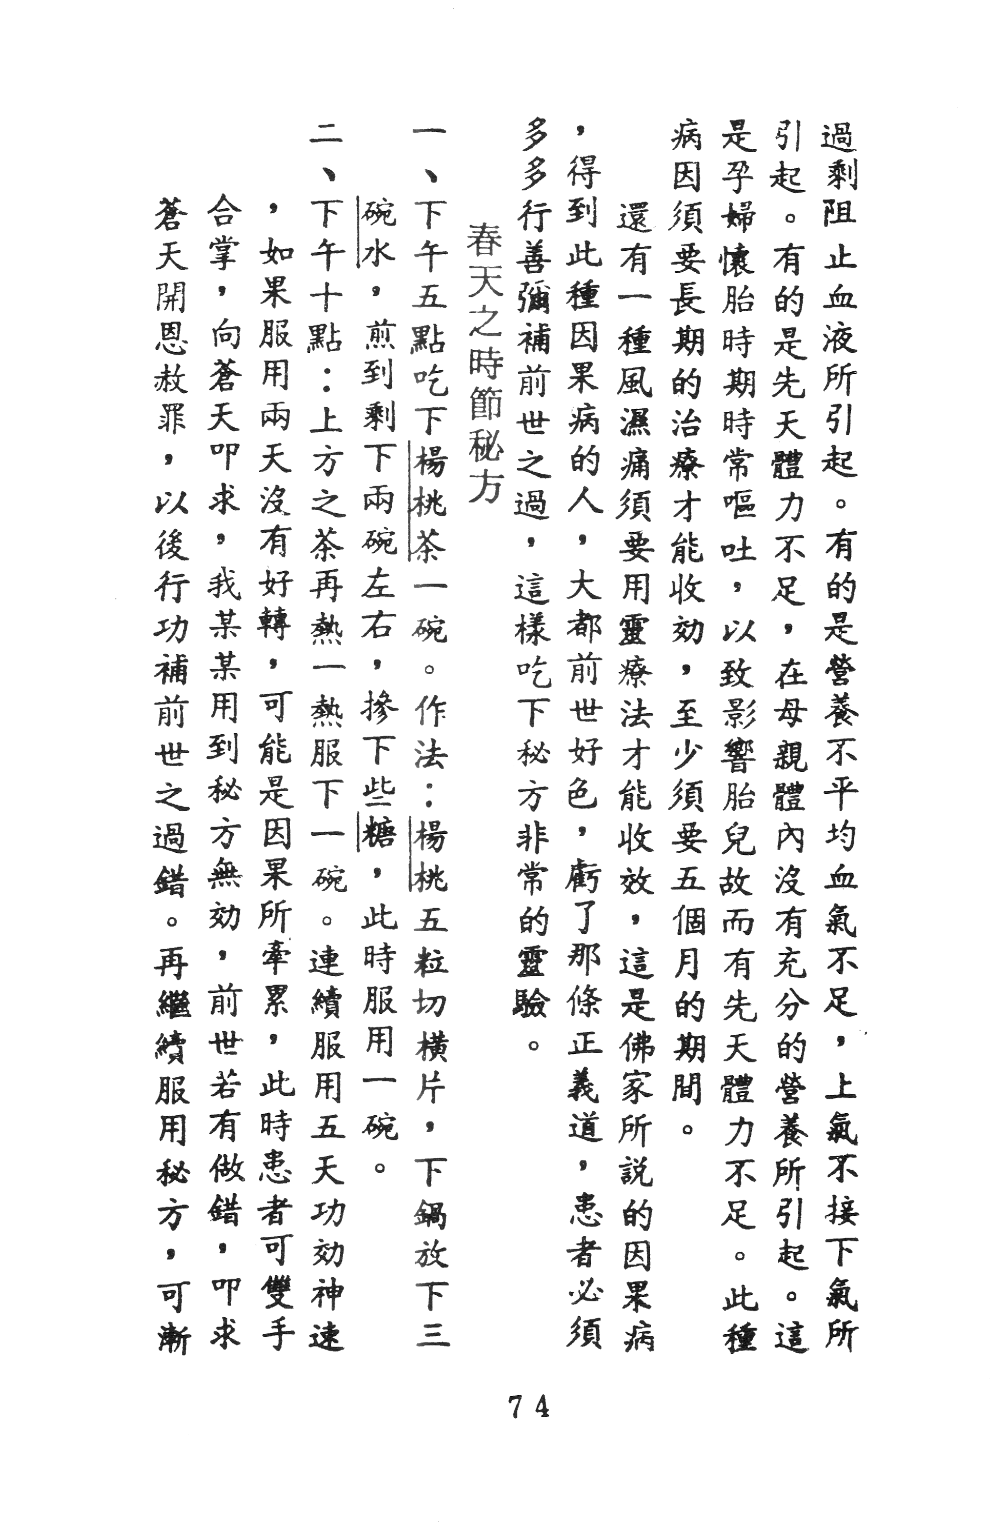 過剩阻止血液所引起。有的是營養不平均血氣不足，上氣不接下氣所
引起。有的是先天體力不足，在母親體內沒有充分的營養所引起。這
是孕婦懷胎時期時常嘔吐，以致影響胎兒故而有先天體力不足。此種
病因須要長期的治療才能收効，至少須要五個月的期間。
還有一種風濕痛須要用靈療法才能收效，這是佛家所説的因果病
，得到此種因果病的人，大都前世好色，虧了那條正義道，患者必須
多多行善彌補前世之過，這樣吃下秘方非常的靈驗。
春天之時節秘方
一、下午五點吃下楊桃茶一碗。作法：楊桃五粒切橫片，下鍋放下三
碗水，煎到剩下兩碗左右，摻下些糖，此時服用一碗。
二、下午十點：上方之茶再熱一熱服下一碗。連續服用五天功効神速
，如果服用兩天沒有好轉，可能是因果所牽累，此時患者可雙手
合掌，向蒼天叩求，我某某用到秘方無効，前世若有做錯，叩求
蒼天開恩赦罪，以後行功補前世之過錯。再繼續服用秘方，可漸
74